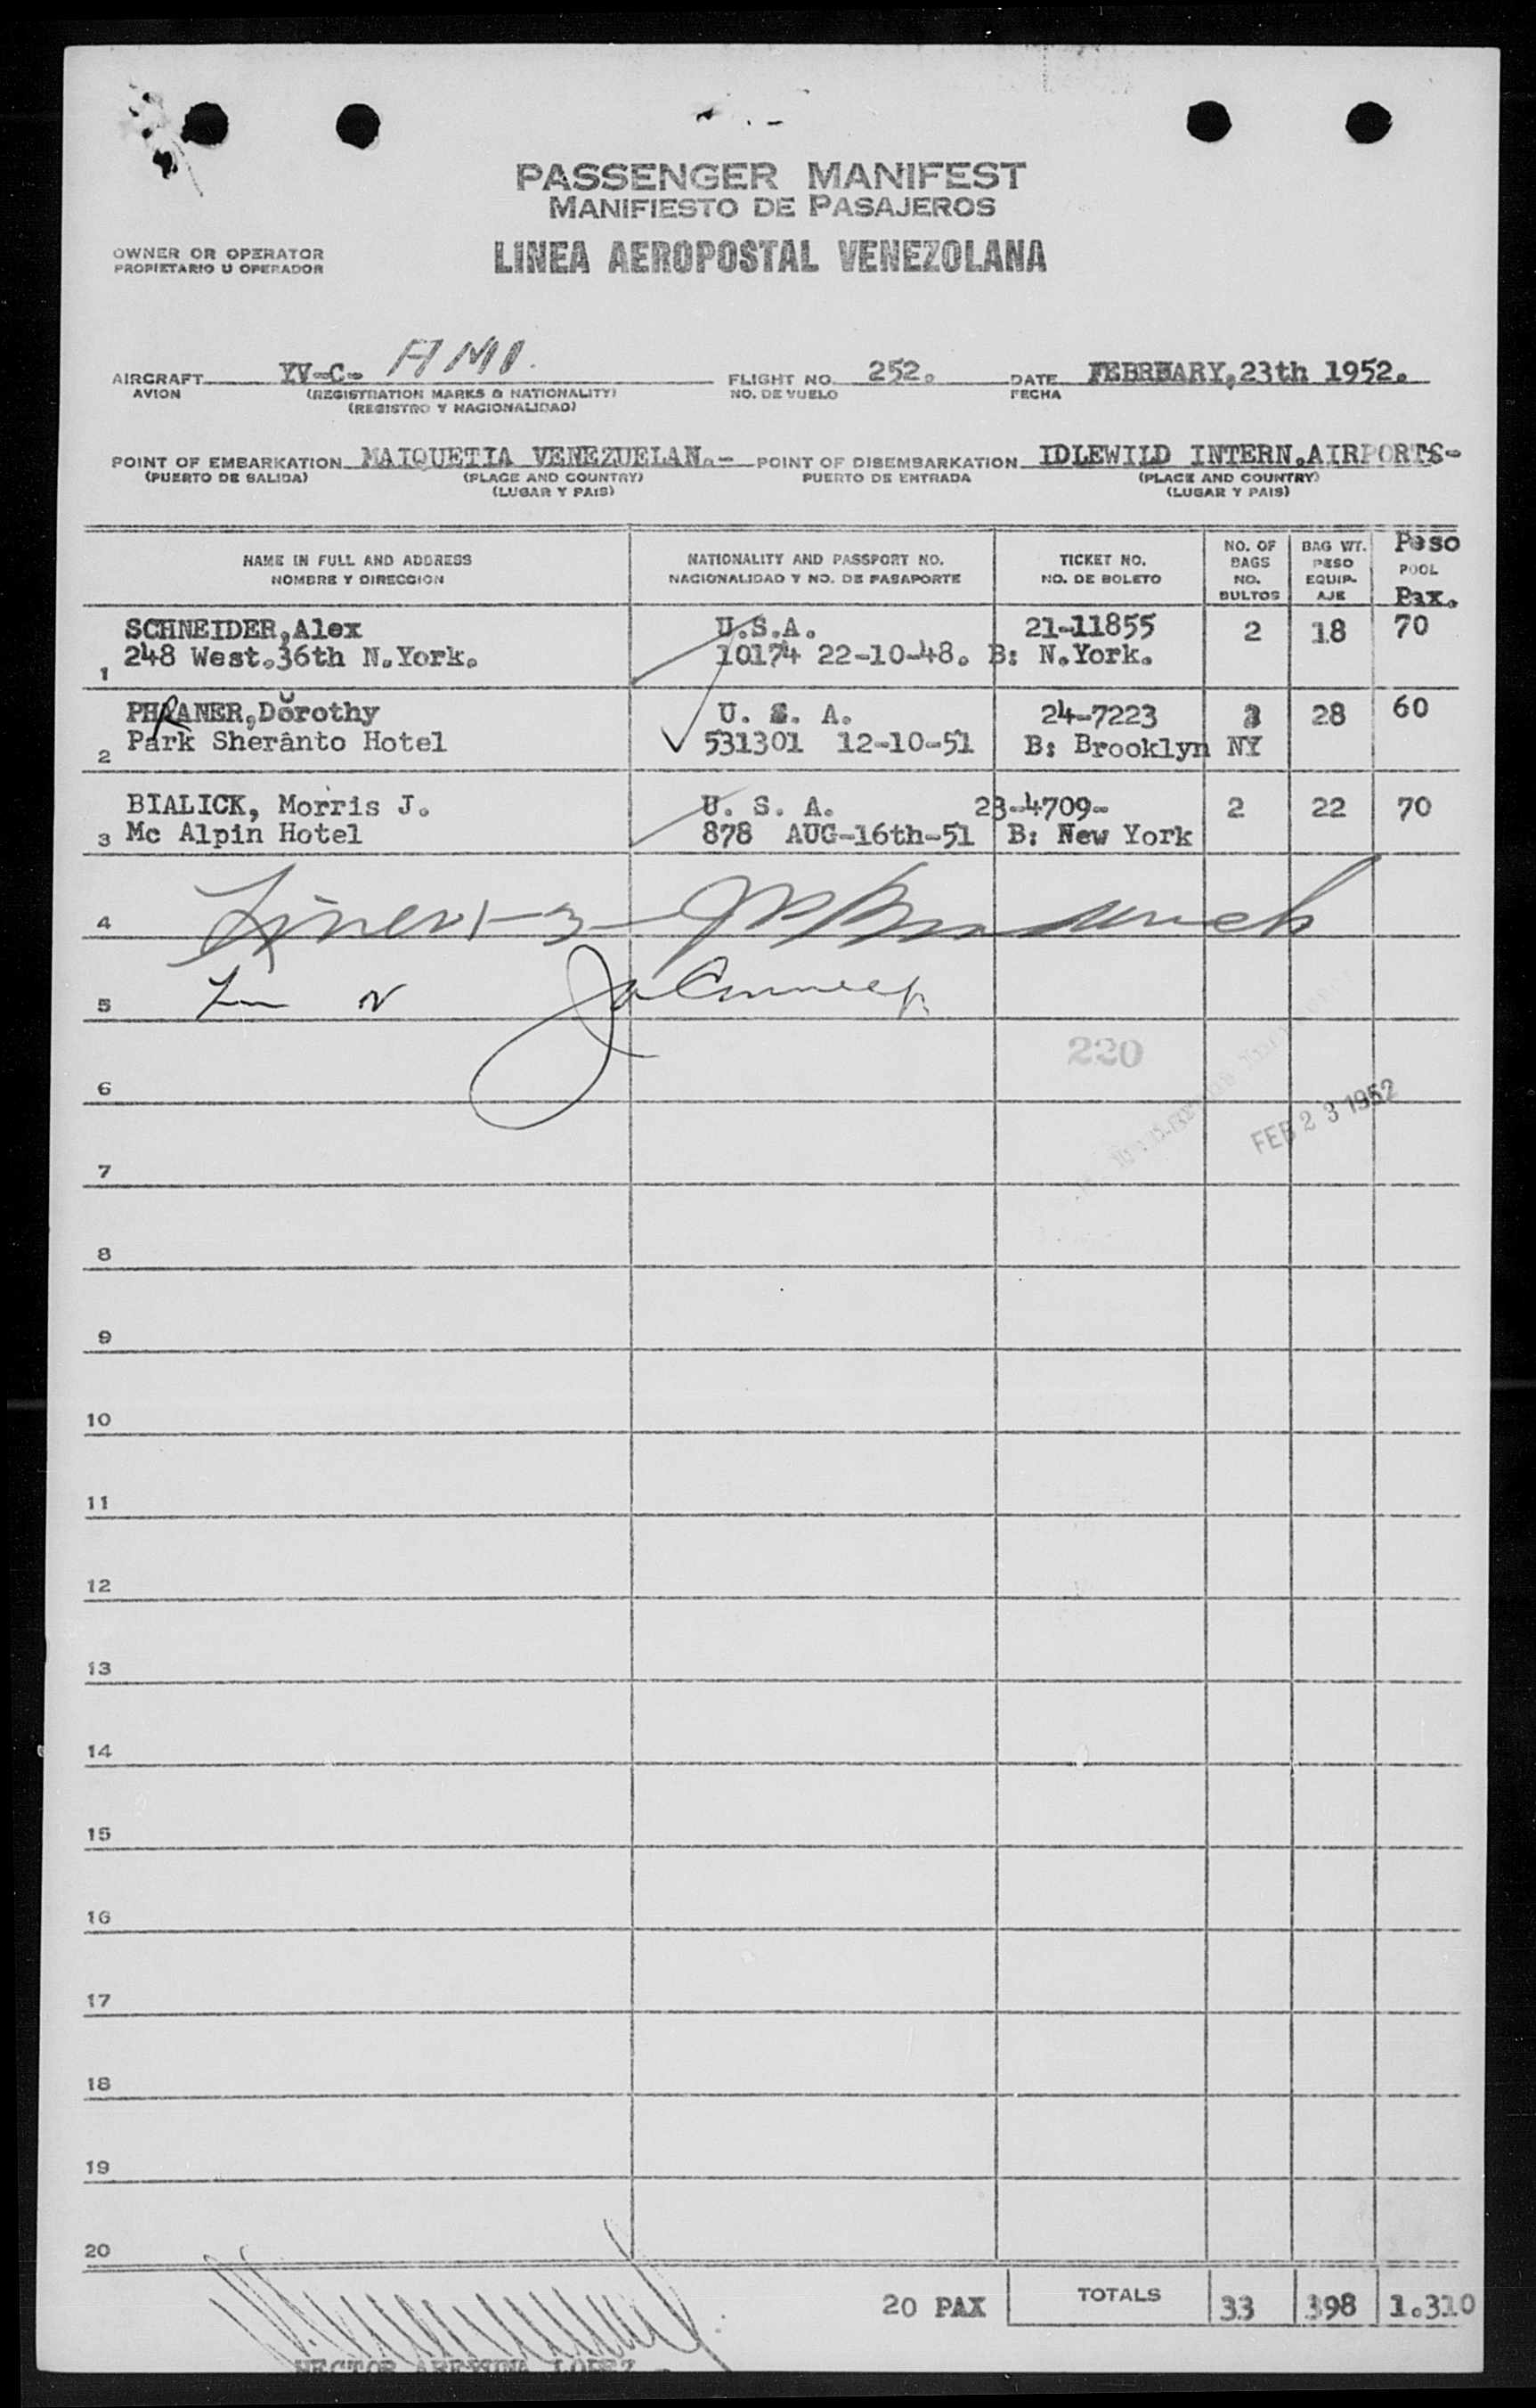 PASSENGER MANIFEST
MANIFIESTO DE PASAJEROS
OWNER OR OPERATOR
PROPIETARIO U OPERADOR
LINEA AEROPOSTAL VENEZOLANA
AIRCRAFT YV-C- AMI. FLIGHT NO. 252. DATE FEBRUARY,23th 1952.
AVION (REGISTRATION MARKS & NATIONALITY) NO. DE VUELO FECHA
(REGISTRO Y NACIONALIDAD)
POINT OF EMBARKATION MAIQUETIA VENEZUELAN.- POINT OF DISEMBARKATION IDLEWILD INTERN.AIRPORTS-
(PUERTO DE SALIDA) (PLACE AND COUNTRY) PUERTO DE ENTRADA (PLACE AND COUNTRY)
(LUGAR Y PAIS) (LUGAR Y PAIS)
NAME IN FULL AND ADDRESS NATIONALITY AND PASSPORT NO. TICKET NO. NO. OF BAGS BAG WT. Peso
NOMBRE Y DIRECCION NACIONALIDAD Y NO. DE PASAPORTE NO. DE BOLETO NO. BULTOS PESO EQUIP-AJE POOL Pax.
SCHNEIDER,Alex U.S.A. 21-11855 2 18 70
1 248 West.36th N.York. 10174 22-10-48. B: N.York.
PHRANER,Dorothy U. S. A. 24-7223 3 28 60
2 Park Sheranto Hotel 531301 12-10-51 B: Brooklyn NY
BIALICK, Morris J. U. S. A. 23-4709- 2 22 70
3 Mc Alpin Hotel 878 AUG-16th-51 B: New York
4 Lines 1-3
5
220
6
FEB 23 1952
7
8
9
10
11
12
13
14
15
16
17
18
19
20
20 PAX TOTALS 33 398 1.310
HECTOR LOPEZ